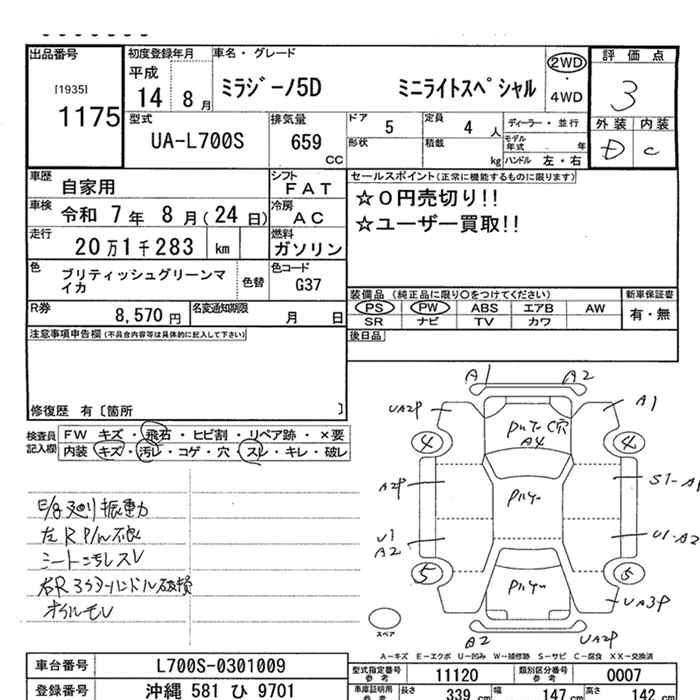 出品番号 初度登録年月 車名・グレード 評価点
[1935] 1175
平成 14 8月 ミラジーノ5D ミニライトスペシャル 2WD・4WD 3
型式 UA-L700S 排気量 659 CC ドア 5 定員 4 人 ディーラー・並行 外装 内装
形状 積載 kg モデル年式 年 ハンドル 左・右 D C
車歴 自家用 シフト FAT セールスポイント(正常に機能するものに限ります)
車検 令和 7年 8月(24日) 冷房 AC ☆0円売切り!!
走行 20万1千283 km 燃料 ガソリン ☆ユーザー買取!!
色 ブリティッシュグリーンマイカ 色替 色コード G37
装備品 (純正品に限り○をつけてください) 新車保証書
R券 8,570円 名変通知期限 月 日 PS PW ABS エアB AW 有・無
SR ナビ TV カワ
注意事項申告欄(不具合内容等は具体的に記入して下さい) 後日品
修復歴 有〔箇所 〕
検査員記入欄 FW キズ・飛石・ヒビ割・リペア跡・×要
内装・キズ・汚レ・コゲ・穴・スレ・キレ・破レ
A1 A2
UA2P A1
C穴
A4
4 4
A2P
U1 A2 U1-A2
5 5
UA3P
A2 UA2P
振動
左R P/W不良
シート汚レスレ
オイルモレ
スペア
A―キズ E―エクボ U―凹み W―補修跡 S―サビ C―腐食 XX―交換済
車台番号 L700S-0301009 型式指定番号 参考 11120 類別区分番号 参考 0007
登録番号 沖縄 581 ひ 9701 車庫証明用 参考 長さ 339 cm 幅 147 cm 高さ 142 cm